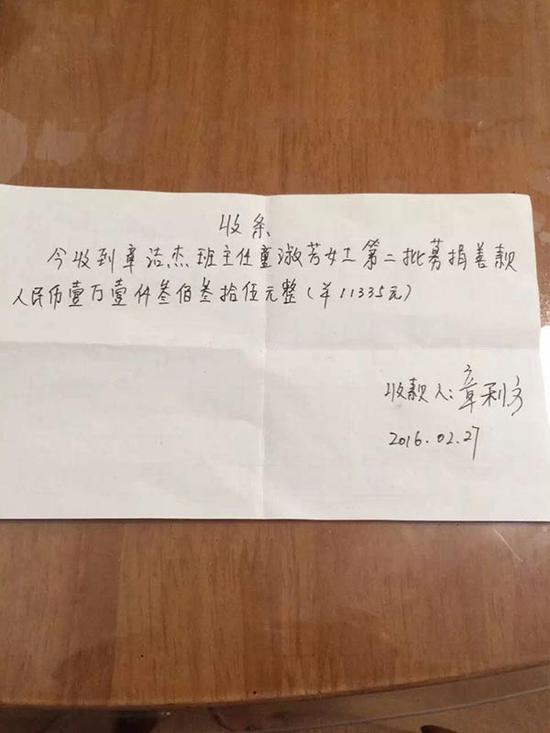 收条
今收到章洁杰班主任童淑芳女士第二批募捐善款
人民币壹万壹仟叁佰叁拾伍元整(¥11335元)
收款人:章利
2016.02.27